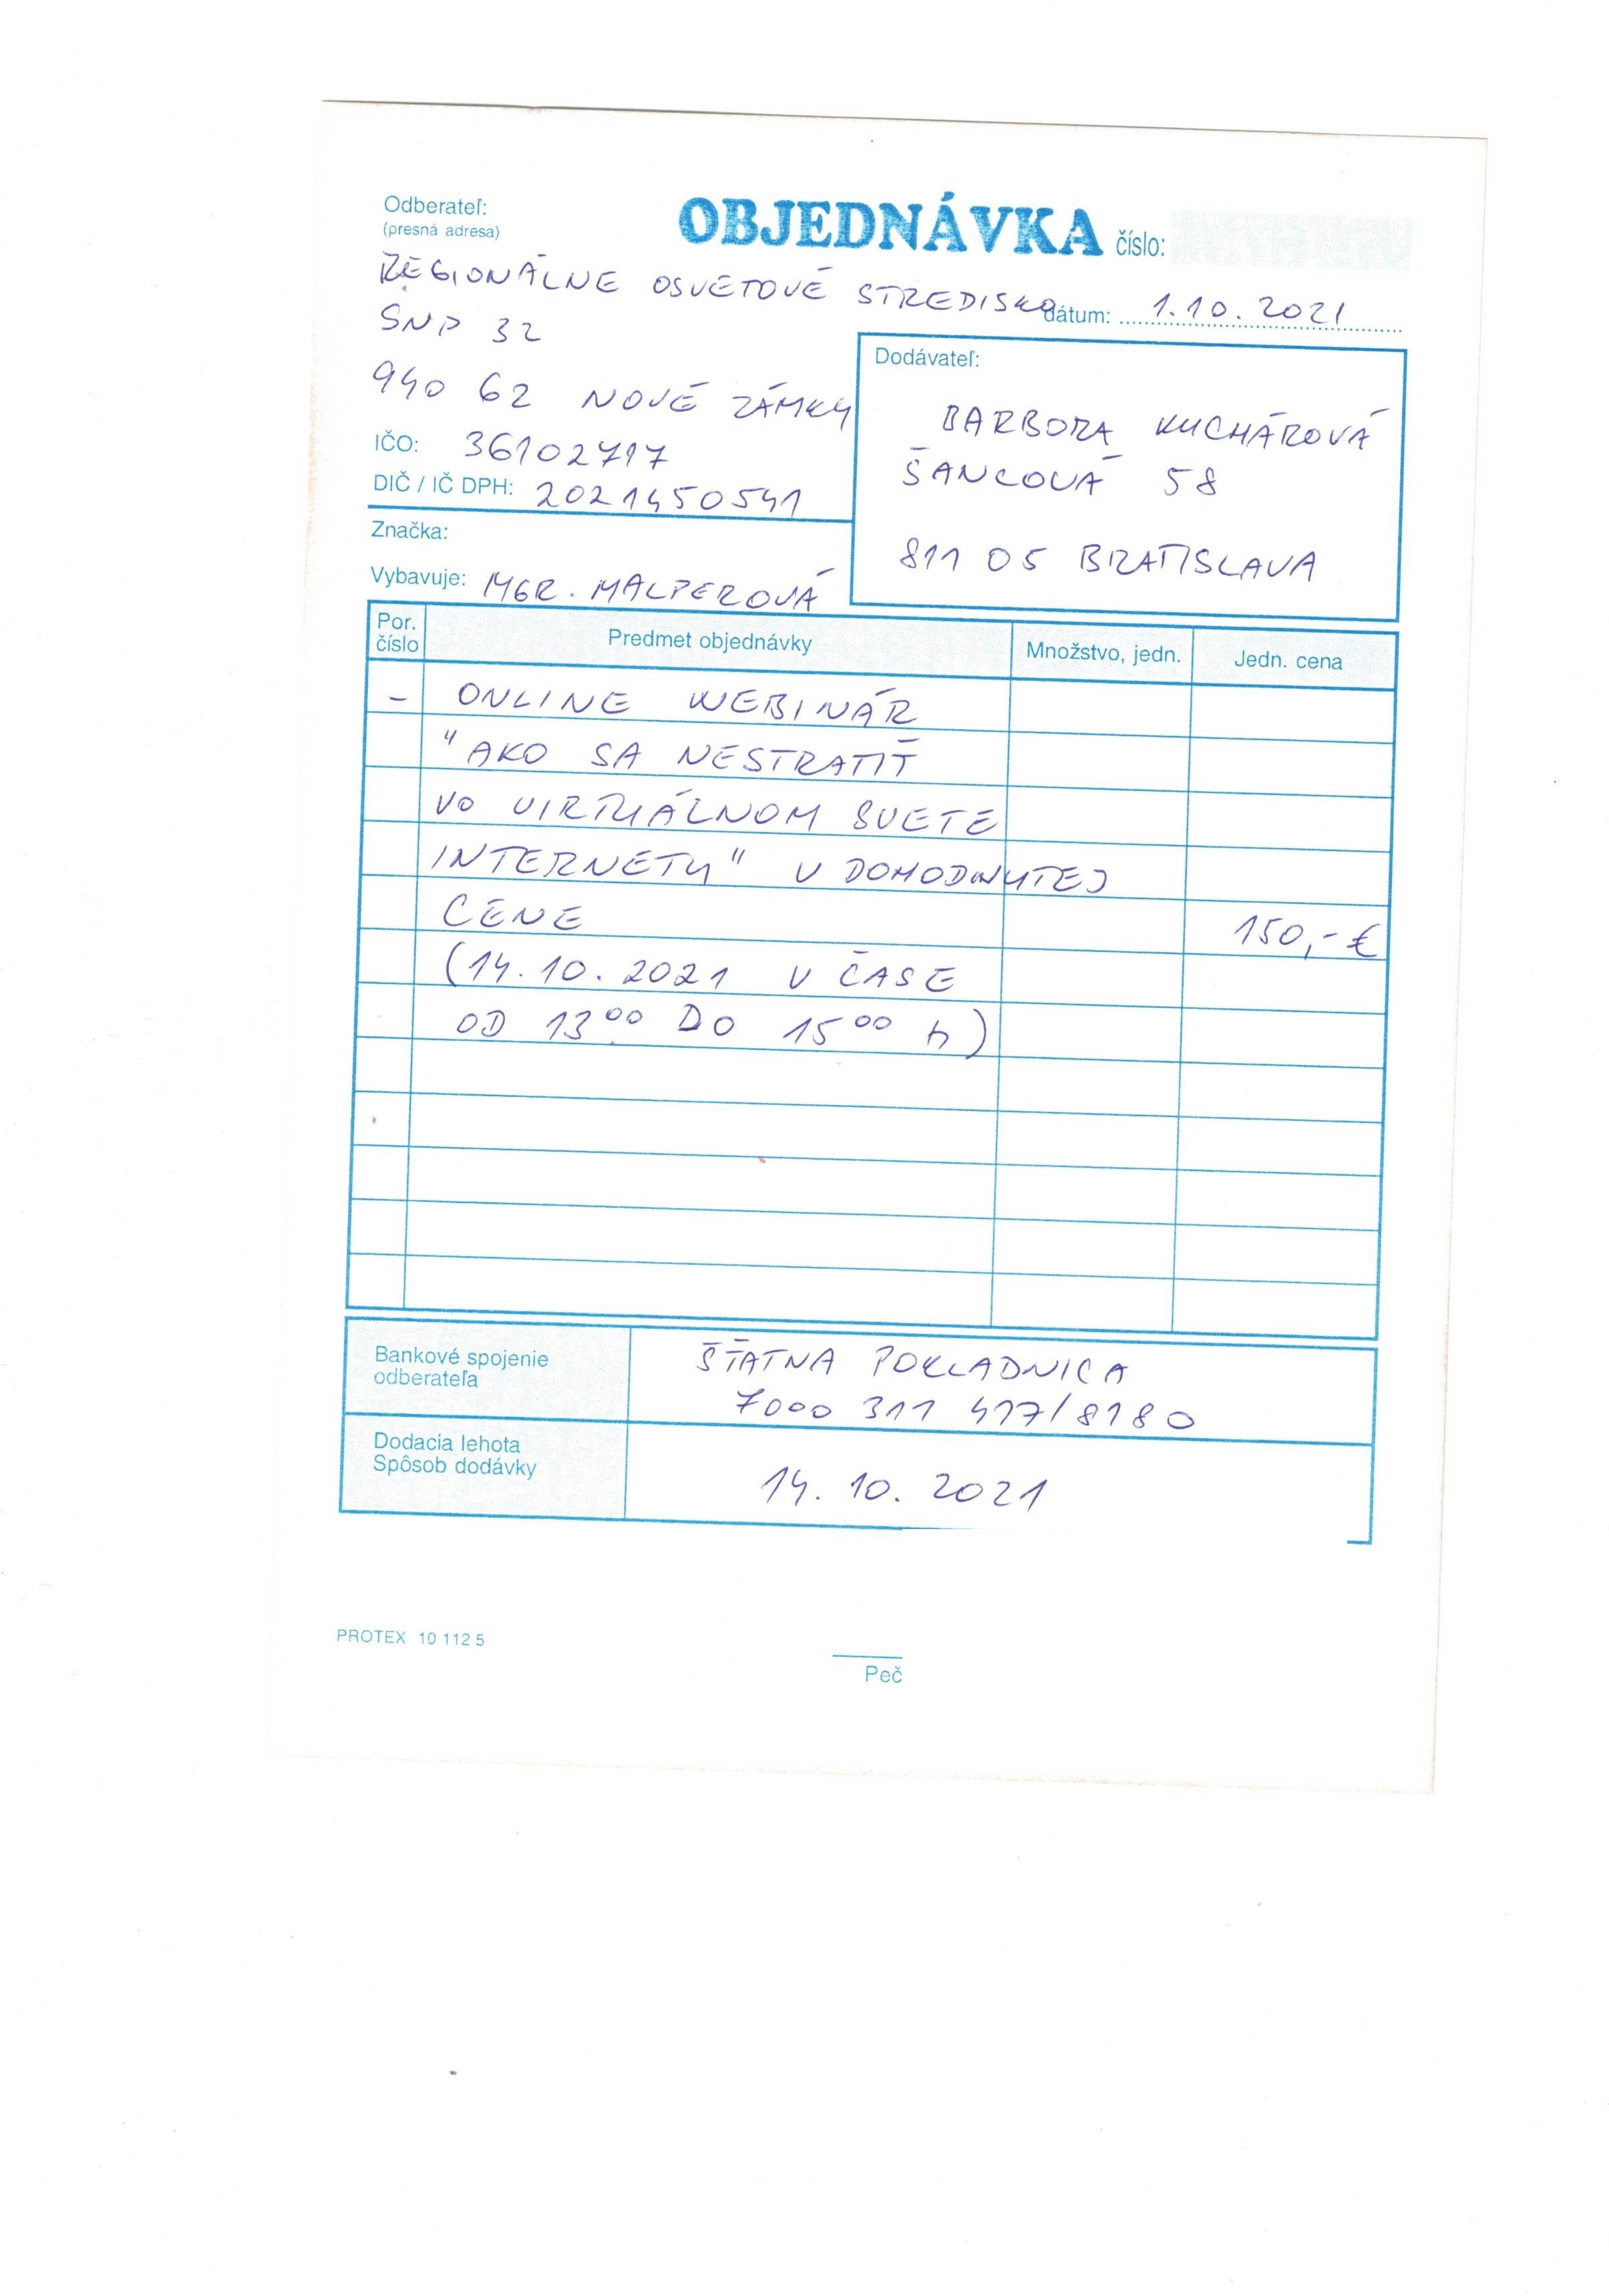 Odberateľ:
(presná adresa)
OBJEDNÁVKA číslo:
REGIONÁLNE OSVETOVÉ STREDISKO
dátum: 1.10.2021
SNP 32
940 62 NOVÉ ZÁMKY
IČO: 36102717
DIČ / IČ DPH: 2021450541
Značka:
Vybavuje: MGR. MALPEROVÁ
Dodávateľ:
BARBORA KUCHÁROVÁ
ŠANCOVÁ 58
811 05 BRATISLAVA
Por. číslo Predmet objednávky Množstvo, jedn. Jedn. cena
– ONLINE WEBINÁR
"AKO SA NESTRATIŤ
VO VIRTUÁLNOM SVETE
INTERNETU" V DOHODNUTEJ
CENE 150,- €
(14.10.2021 V ČASE
OD 13⁰⁰ DO 15⁰⁰ h)
Bankové spojenie
odberateľa
ŠTÁTNA POKLADNICA
7000 311 417/8180
Dodacia lehota
Spôsob dodávky
14. 10. 2021
PROTEX 10 112 5
Peč